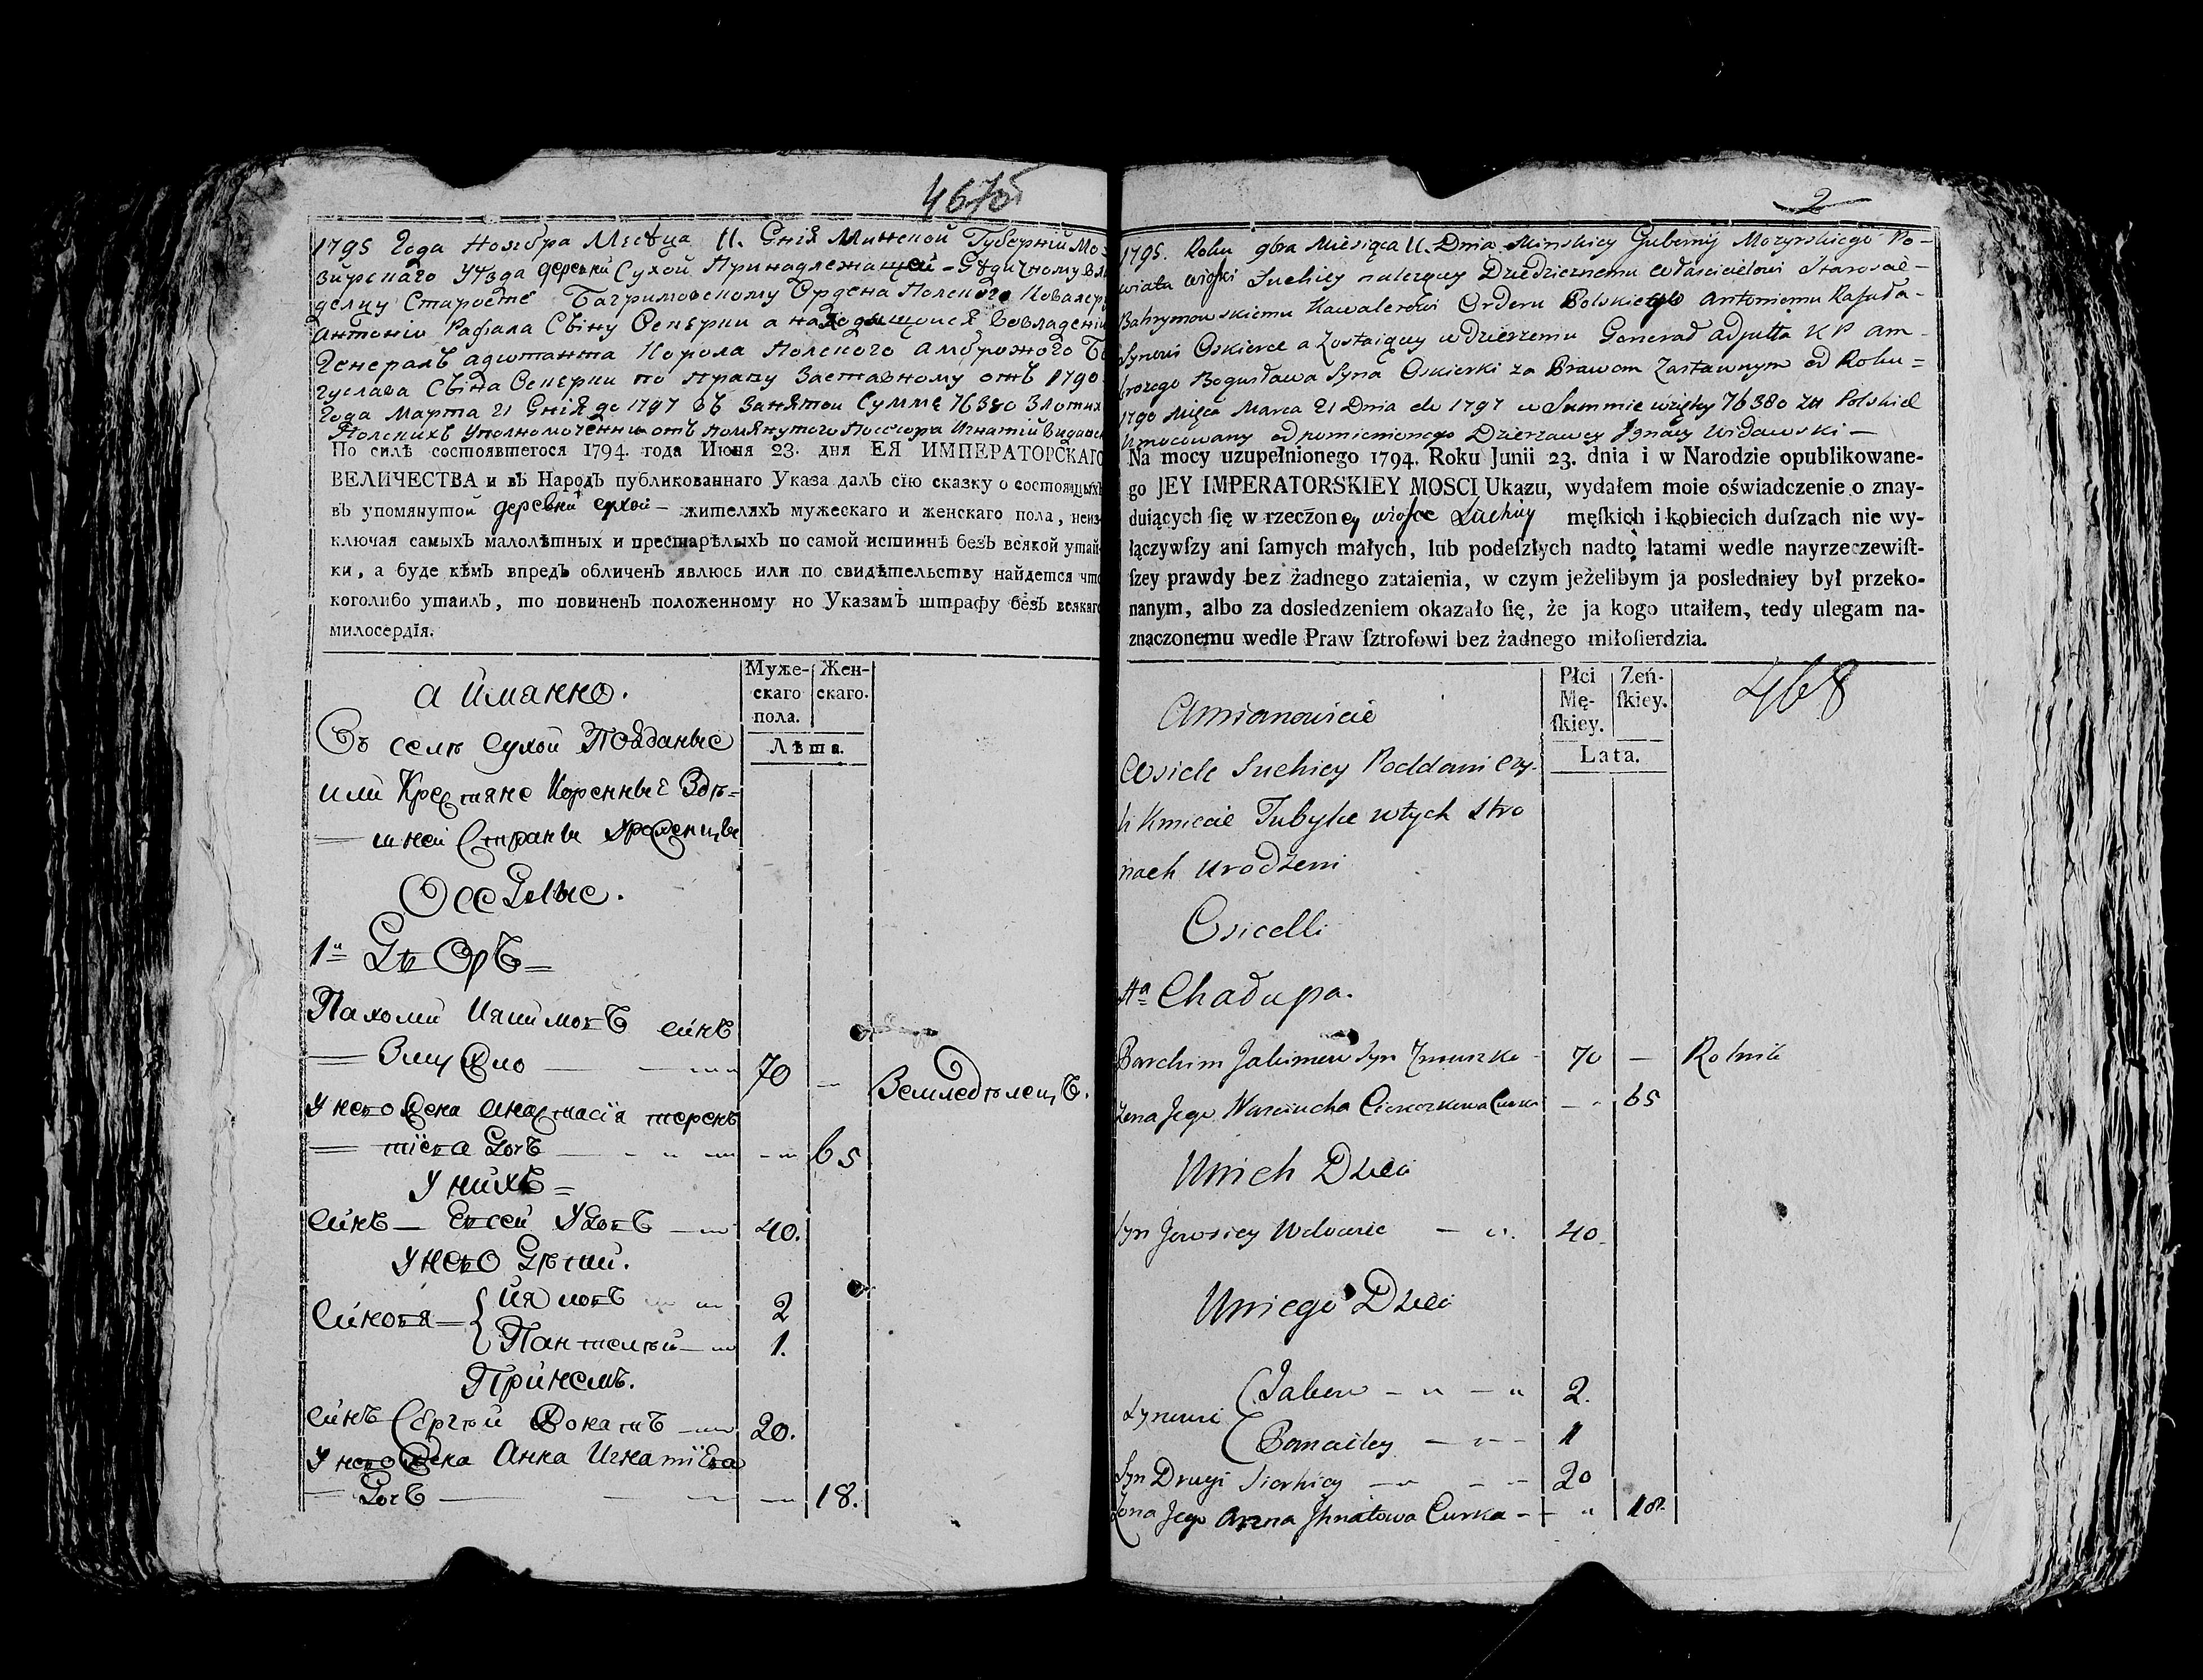 467об
1795 Года Ноября Месѣца 11. Дніѧ Минской Губерній Мо-
зирскаго Уѣзда деревни Сухой Принадлежащей - Дѣдичному вла
делцу Старостѣ Багримовскому Ордена Полского Ковалеру
Антонію Рафала Сѣину Оскерки а находящоися во владеніи
Генералъ адютанта Короля Полского Амброжого Бо
гуслава Сѣина Оскерки по праву Заставному отъ 1790
Года Марта 21 Дніѧ до 1797 въ Занятои Суммѣ 76380 Злотих
Полскихъ Уполномоченни отъ помянутого Поссесора Игнатій Видавск
По силѣ состоявшегося 1794. года Июня 23. дня ЕЯ ИМПЕРАТОРСКАГО
ВЕЛИЧЕСТВА и въ Народъ публикованнаго Указа далъ сїю сказку о состоящыхъ
въ упомянутой деревни сухой - жителяхъ мужескаго и женскаго пола, неиз-
ключая самыхъ малолѣтныхъ и престарѣлыхъ по самой истиннѣ безъ всякой утай-
ки, а буде кѣмъ впредь обличенъ явлюсь или по свидѣтельству найдется что
коголибо утаилъ, то повиненъ положенному по Указамъ штрафу безъ всякаго
милосердїя.
а ймянно.
Муже- Жен-
скаго скаго.
пола.
Лѣта.
Въ селѣ Сухой Подданые
или Крестяне Коренные Здѣ=
шней Страны Уроженцы
Оседлые.
1й Дворъ
Пахоми Якимовъ сынъ
Змушко 70 — Земледѣлецъ.
У него жена Анастасїя терень
тїева Дочь 65
У нихъ
Сынъ — Евсей Удовъ 40.
У него Дѣти.
Сыновя { Яковъ 2
Пантелѣй 1.
При немъ.
Сынъ Сергѣй Жонатъ 20.
У него Жена Анна Игнатїева
Дочь 18.
2
1795. Roku 9bra Miesiąca 11. Dnia Minskiey Gubernij Mozyrskiego Po-
wiata wioski Suchiey należącey Dziedzicznemu właścicielowi Starosćie-
Bahrymowskiemu Kawalerowi Orderu Polskiego Antoniemu Rafała-
Synowi Oskierce a Zostaiącey w dzierzeniu Generał adjutta K P am-
brożego Bogusława Syna Oskierki za Prawem Zastawnym od Roku=
1790 Mięca Marca 21 Dnia do 1797 w Summie wzięty 76380 Zł Polskich
Umocowany od pomienionego Dzierżawcy Ignacy Widawski —
Na mocy uzupełnionego 1794. Roku Junii 23. dnia i w Narodzie opublikowane-
go JEY IMPERATORSKIEY MOSCI Ukazu, wydałem moie oświadczenie o znay-
duiących ſię w rzeczoney wiosce Suchiy męſkich i kobiecich duſzach nie wy-
łączywſzy ani ſamych małych, lub podeſzłych nadto latami wedle nayrzeczewiſt-
ſzey prawdy bez żadnego zataienia, w czym jeżelibym ja posledniey był przeko-
nanym, albo za dosledzeniem okazało ſię, że ja kogo utaiłem, tedy ulegam na-
znaczonemu wedle Praw ſztrofowi bez żadnego miłoſierdzia.
Amianowicie
Płci Zeń-
Mę- ſkiey.
ſkiey.
Lata.
468
Wsiele Suchiey Poddani czy-
li Kmiecie Tubylce wtych Stro
nach Urodzeni
Osiedli
1a Chałupa.
Parchim Jakimow Syn Zmuszko 70 — Rolnik
Zena Jego Curka 65
Unich Dzieci
Syn Jowsiey Wdowiec 40.
Uniego Dzieci
Synowi { Jakow 2.
Pancieley 1
Syn Drugi Siarhiey 20
Żona Jego Anna Ihnatowa Curka 18.